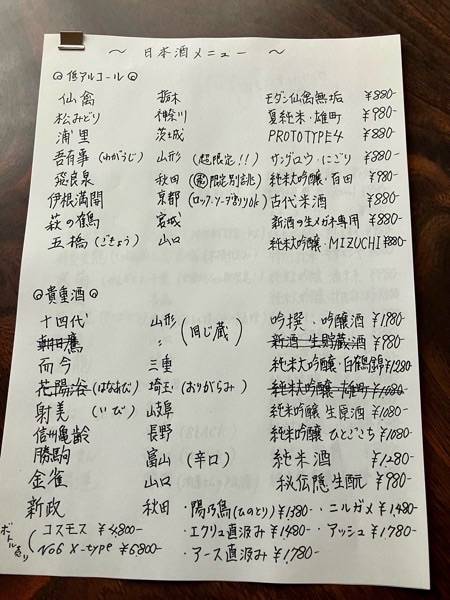 ～ 日本酒メニュー ～
◎低アルコール◎
仙禽 栃木 モダン仙禽無垢 ¥880-
松みどり 神奈川 夏純米・雄町 ¥980-
浦里 茨城 PROTOTYPE4 ¥880-
吾有事(わがうじ) 山形 (超限定!!) サングュウ・にごり ¥880-
飛良泉 秋田 限定別誂 純米大吟醸・百田 ¥980-
伊根満開 京都 (ロック・ソーダ割りOK) 古代米酒 ¥880-
萩の鶴 宮城 新酒の生メガネ専用 ¥880-
五橋(ごきょう) 山口 純米大吟醸・MIZUCHI ¥880-
◎貴重酒◎
十四代 山形 (同じ蔵) 吟撰・吟醸酒 ¥1,980-
〃 新酒・生貯蔵酒 ¥980-
而今 三重 純米大吟醸・白鶴錦 ¥1,280-
花陽浴(はなあび) 埼玉(おりがらみ) 純米大吟醸・雄町 ¥1,080-
射美(いび) 岐阜 純米吟醸 生原酒 ¥1,080-
信州亀齢 長野 純米吟醸 ひとごこち ¥1,080-
勝駒 富山(辛口) 純米酒 ¥1,280-
金雀 山口 秘伝隠生酛 ¥980-
新政 秋田 ・陽乃鳥(ひのとり) ¥1,380- ・ニルガメ ¥1,480-
ボトル有り ( コスモス ¥4,800- ・エクリュ直汲み ¥1,480- ・アッシュ ¥1,780-
No6 X-type ¥6,800- ・アース直汲み ¥1,780-